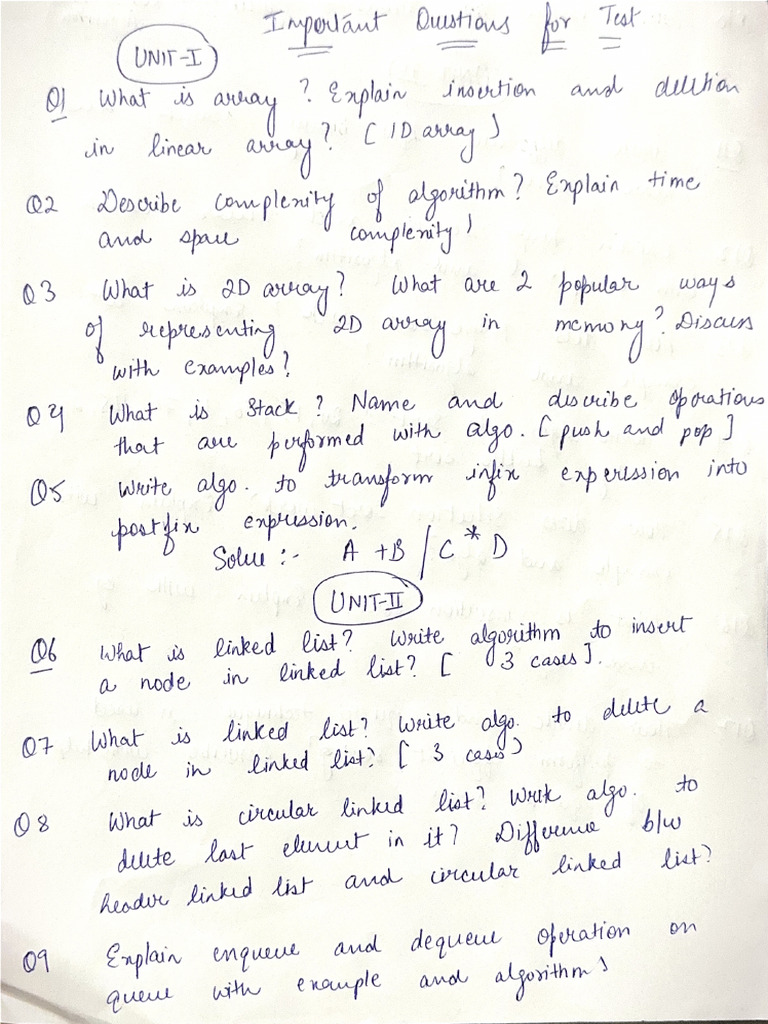 Important Questions for Test
UNIT-I
Q1 What is array ? Explain insertion and deletion
in linear array? [ 1D array )
Q2 Describe complexity of algorithm? Explain time
and space complexity )
Q3 What is 2D array? What are 2 popular ways
of representing 2D array in memory? Discuss
with examples?
Q4 What is Stack ? Name and describe operations
that are performed with algo. [ push and pop ]
Q5 Write algo. to transform infix experession into
postfix expression.
Solve :- A +B / C * D
UNIT-II
Q6 What is linked list? Write algorithm to insert
a node in linked list? [ 3 cases ].
Q7 What is linked list? Write algo. to delete a
node in linked list? [ 3 cases )
Q8 What is circular linked list? Write algo. to
delete last element in it? Difference b/w
header linked list and circular linked list?
Q9 Explain enqueue and dequeue operation on
queue with example and algorithm )